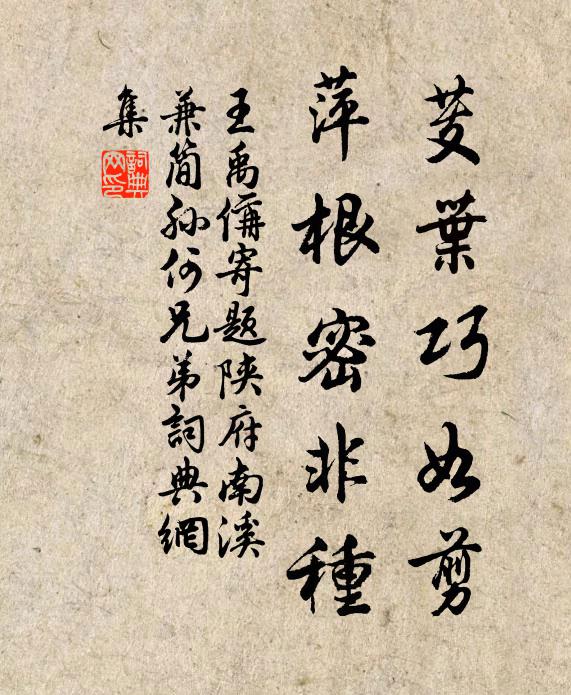 芰葉巧如剪
萍根密非種
王禹偁寄題陝府南溪
兼簡孫何兄弟詞典網
集
詞典
网印